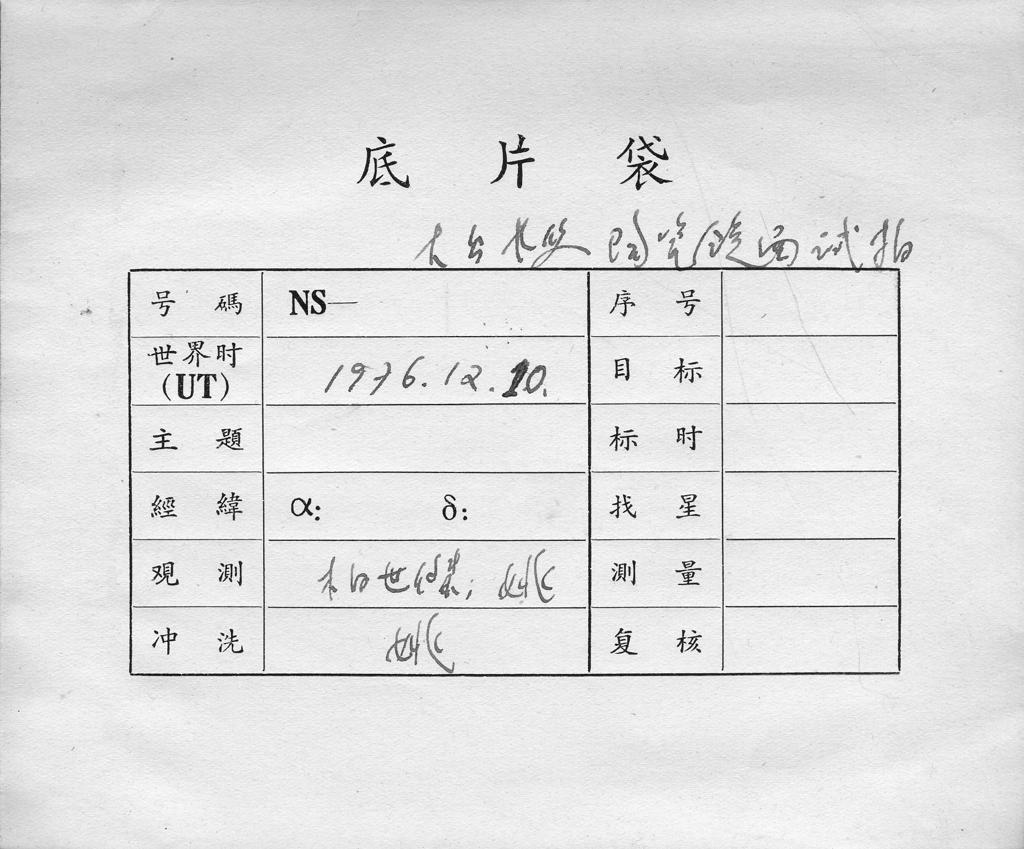 底片袋
陶瓷镜面试拍
号碼 NS— 序号
世界时(UT) 1976.12.10. 目标
主題 标时
經緯 α: δ: 找星
观測 柏世傑; 姚 測量
冲洗 姚 复核